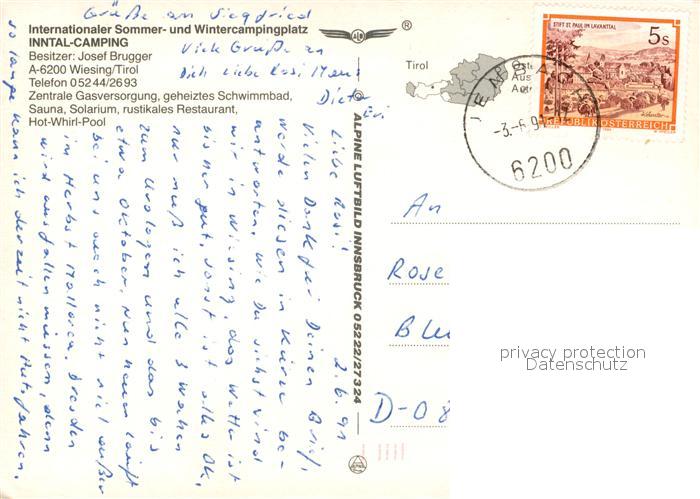 Grüße an Siegfried
Internationaler Sommer- und Wintercampingplatz
INNTAL-CAMPING
Besitzer: Josef Brugger
A-6200 Wiesing/Tirol
Telefon 05244/2693
Zentrale Gasversorgung, geheiztes Schwimmbad,
Sauna, Solarium, rustikales Restaurant,
Hot-Whirl-Pool
Viele Grüße an
Dich liebe Rosi
Dieter
Evi
®
Tirol
STIFT ST. PAUL IM LAVANTTAL
5 S
REPUBLIK ÖSTERREICH
6200
ALPINE LUFTBILD INNSBRUCK 05222/27324
2.6.91
Liebe Rosi!
Vielen Dank für Deinen Brief,
werde diesen in Kürze be-
antworten. Wie Du siehst sind
wir in Wiesing, das Wetter ist
bisher gut, sonst ist alles OK,
nur muß ich alle 3 Wochen
zum Urologen und das bis
etwa Oktober. Nun kann läuft
bei uns auch nicht viel außer
im Herbst Mallorca. Dresden
wird ausfallen müssen, denn
so lange kann ich derzeit nicht Auto fahren.
An
Rose
D-08
privacy protection
Datenschutz